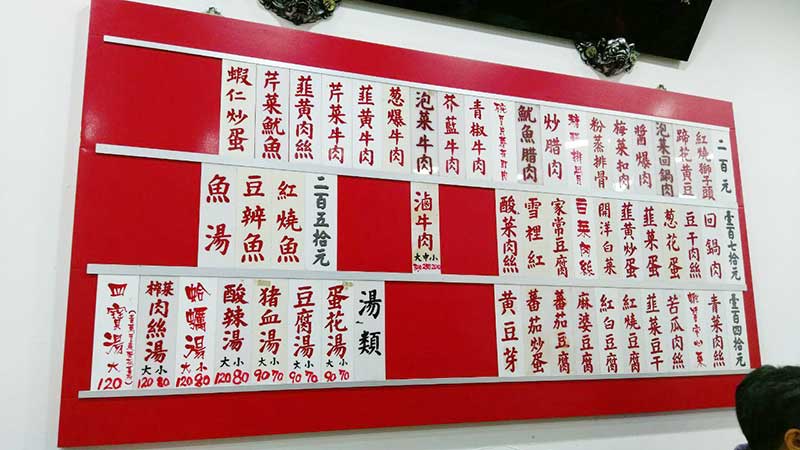 二百元
紅燒獅子頭
蹄花黃豆
泡菜回鍋肉
醬爆肉
梅菜扣肉
粉蒸排骨
糖醋排骨
炒腊肉
魷魚腊肉
青椒牛肉
芥藍牛肉
泡菜牛肉
葱爆牛肉
韮黃牛肉
芹菜牛肉
韮黃肉絲
芹菜魷魚
蝦仁炒蛋
壹百七拾元
回鍋肉
豆干肉絲
葱花蛋
韮菜蛋
韮黃炒蛋
開洋白菜
菜肉絲
家常豆腐
雪裡紅
酸菜肉絲
滷牛肉
大中小
二百五拾元
紅燒魚
豆辨魚
魚湯
壹百四拾元
青菜肉絲
苦瓜肉絲
韮菜豆干
紅燒豆腐
紅白豆腐
麻婆豆腐
蕃茄豆腐
蕃茄炒蛋
黃豆芽
湯類
蛋花湯
大 小
90 70
豆腐湯
大 小
90 70
猪血湯
大 小
90 70
酸辣湯
大 小
120 80
蛤蠣湯
大 小
120 80
榨菜肉絲湯
大 小
120 80
四寶湯
大
120